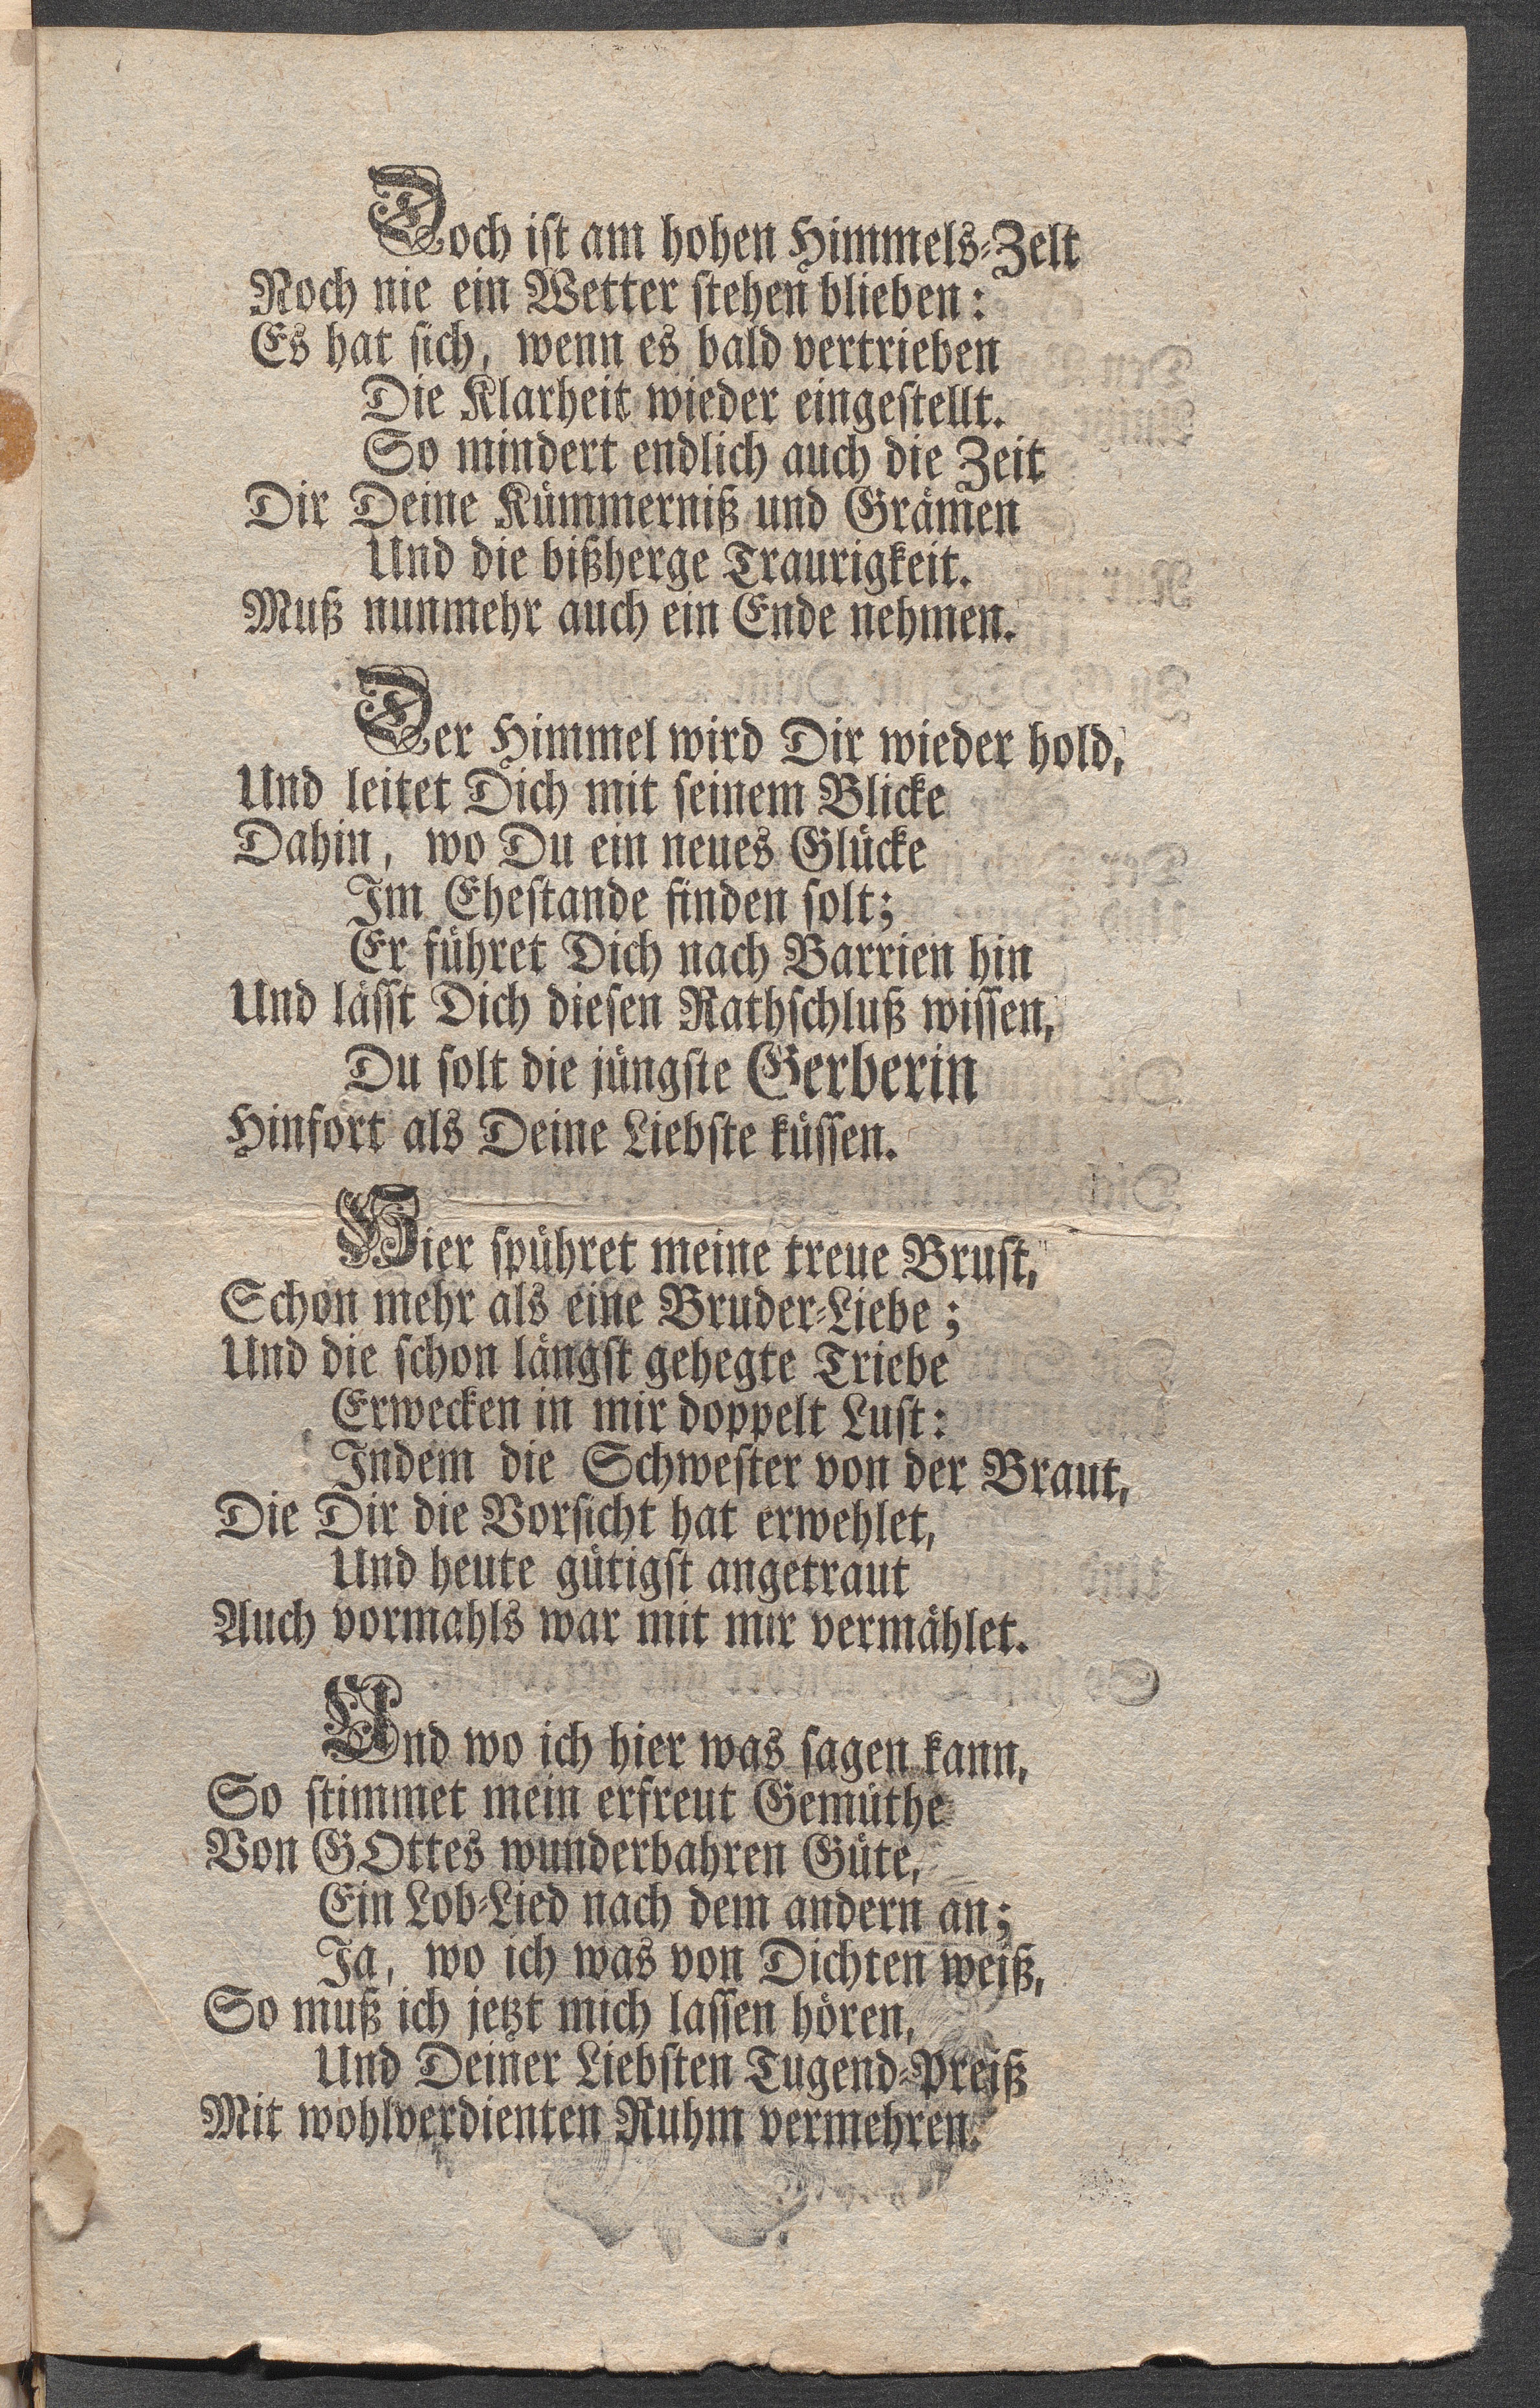 Doch ist am hohen Himmels-Zelt
Noch nie ein Wetter stehen blieben:
Es hat sich, wenn es bald vertrieben
Die Klarheit wieder eingestellt.
So mindert endlich auch die Zeit
Dir Deine Kümmerniß und Grämen
Und die bißherge Traurigkeit.
Muß nunmehr auch ein Ende nehmen.
Der Himmel wird Dir wieder hold,
Und leitet Dich mit seinem Blicke
Dahin, wo Du ein neues Glücke
Im Ehestande finden solt;
Er führet Dich nach Barrien hin
Und lässt Dich diesen Rathschluß wissen,
Du solt die jüngste Gerberin
Hinfort als Deine Liebste küssen.
Hier spühret meine treue Brust,
Schon mehr als eine Bruder-Liebe;
Und die schon längst gehegte Triebe
Erwecken in mir doppelt Lust:
Indem die Schwester von der Braut,
Die Dir die Vorsicht hat erwehlet,
Und heute gütigst angetraut
Auch vormahls war mit mir vermählet.
Und wo ich hier was sagen kann,
So stimmet mein erfreut Gemüthe
Von GOttes wunderbahren Güte,
Ein Lob-Lied nach dem andern an;
Ja, wo ich was von Dichten weiß,
So muß ich jetzt mich lassen hören,
Und Deiner Liebsten Tugend-Preiß
Mit wohlverdienten Ruhm vermehren.